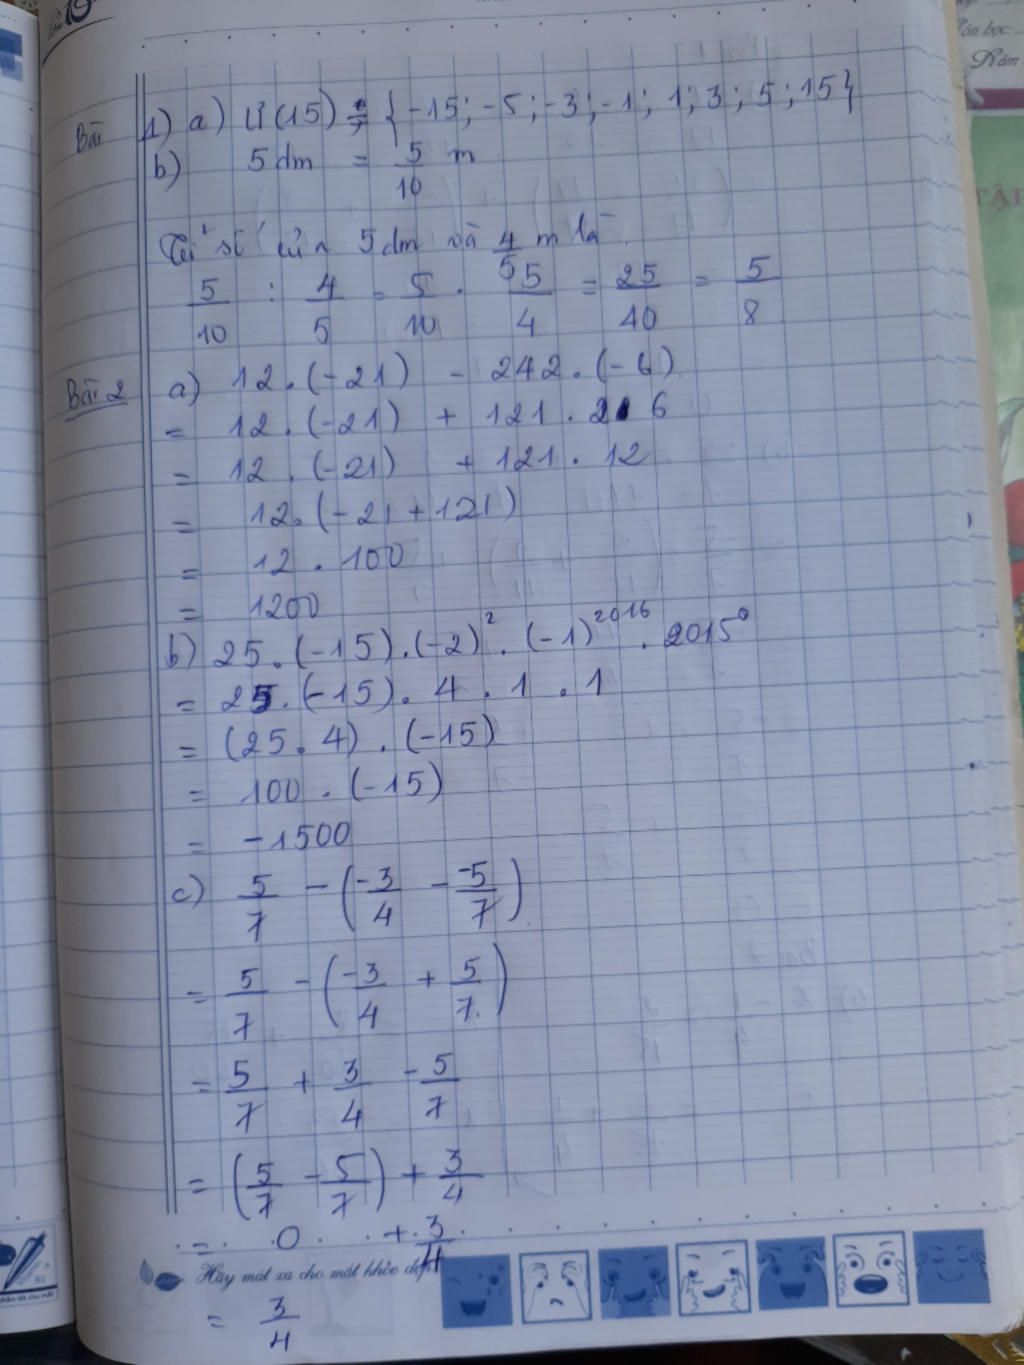 Bài 1) a) Ư(15) = {-15; -5; -3; -1; 1; 3; 5; 15}
b) 5 dm = 5/10 m
Tỉ số của 5 dm và 4/5 m là
5/10 : 4/5 = 5/10 . 5/4 = 25/40 = 5/8
Bài 2 a) 12. (-21) - 242. (-6)
= 12. (-21) + 121 . 2 6
= 12 . (-21) + 121 . 12
= 12. (-21 + 121)
= 12 . 100
= 1200
b) 25. (-15). (-2)² . (-1)²⁰¹⁶ . 2015⁰
= 25. (-15). 4 . 1 . 1
= (25. 4) . (-15)
= 100 . (-15)
= -1500
c) 5/7 - (-3/4 - -5/7)
= 5/7 - (-3/4 + 5/7)
= 5/7 + 3/4 - 5/7
= (5/7 - 5/7) + 3/4
= 0 + 3/4
Hãy mát xa cho mắt khỏe đẹp
= 3/4